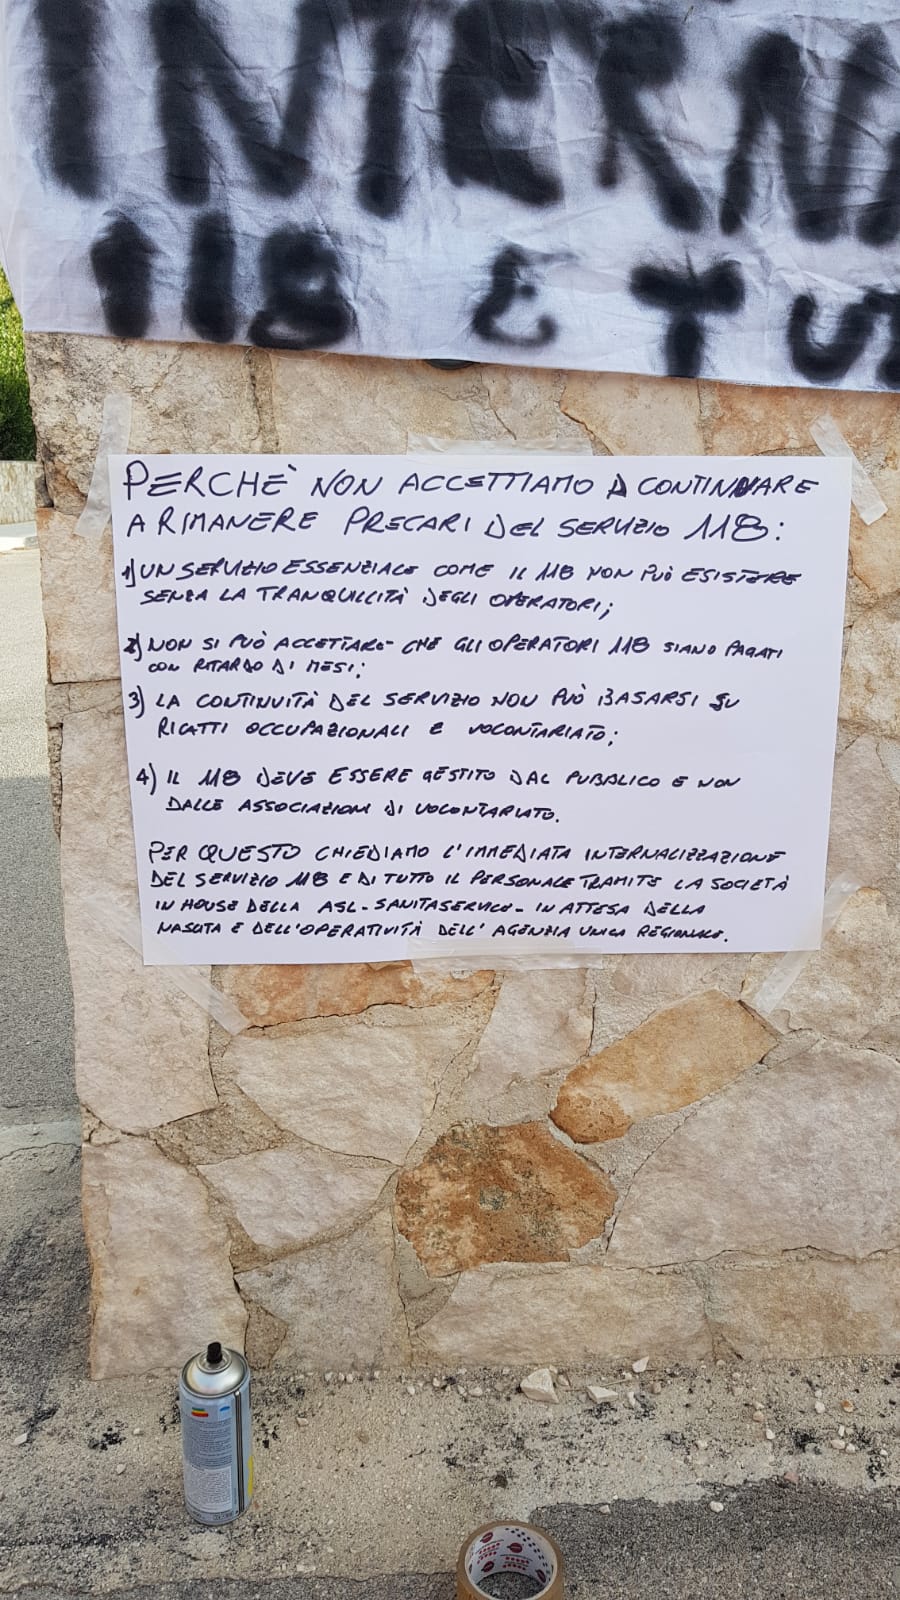 INTERN
118 E TU
PERCHÈ NON ACCETTIAMO A CONTINUARE
A RIMANERE PRECARI DEL SERVIZIO 118:
1) UN SERVIZIO ESSENZIALE COME IL 118 NON PUÒ ESISTERE
SENZA LA TRANQUILLITÀ DEGLI OPERATORI;
2) NON SI PUÒ ACCETTARE CHE GLI OPERATORI 118 SIANO PAGATI
CON RITARDO DI MESI;
3) LA CONTINUITÀ DEL SERVIZIO NON PUÒ BASARSI SU
RICATTI OCCUPAZIONALI E VOLONTARIATO;
4) IL 118 DEVE ESSERE GESTITO DAL PUBBLICO E NON
DALLE ASSOCIAZIONI DI VOLONTARIATO.
PER QUESTO CHIEDIAMO L'IMMEDIATA INTERNALIZZAZIONE
DEL SERVIZIO 118 E DI TUTTO IL PERSONALE TRAMITE LA SOCIETÀ
IN HOUSE DELLA ASL-SANITASERVICE-IN ATTESA DELLA
NASCITA E DELL'OPERATIVITÀ DELL'AGENZIA UNICA REGIONALE.